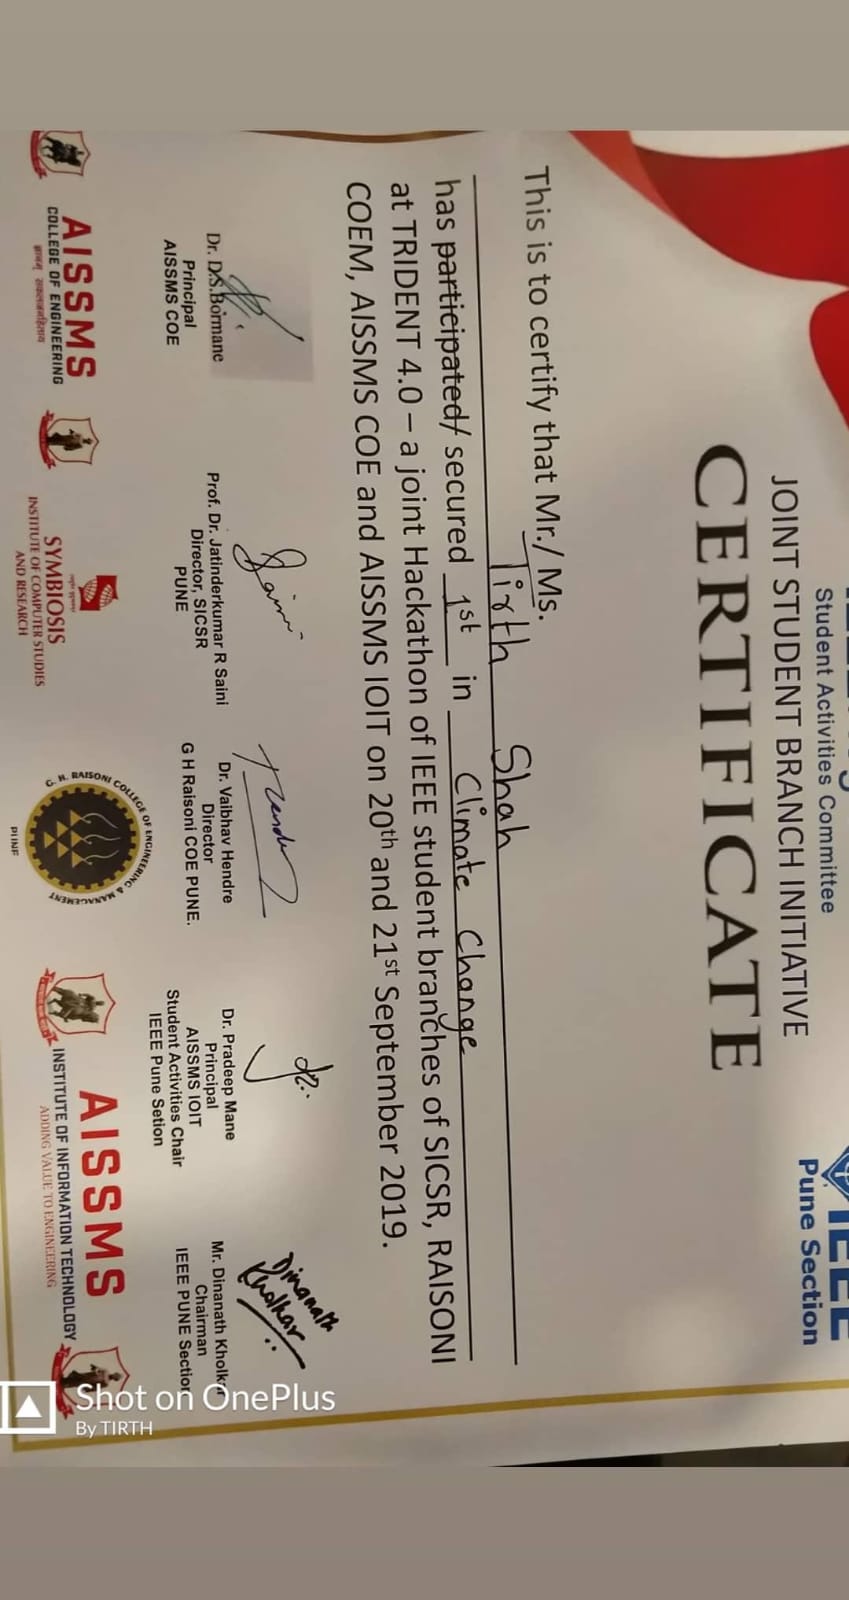 Student Activities Committee
Pune Section
JOINT STUDENT BRANCH INITIATIVE
CERTIFICATE
This is to certify that Mr./ Ms.
Tirth Shah
has participated/ secured 1st in Climate Change
at TRIDENT 4.0 – a joint Hackathon of IEEE student branches of SICSR, RAISONI
COEM, AISSMS COE and AISSMS IOIT on 20th and 21st September 2019.
Dinanath
Kholkar
Dr. D.S.Bormane
Principal
AISSMS COE
Prof. Dr. Jatinderkumar R Saini
Director, SICSR
PUNE
Dr. Vaibhav Hendre
Director
G H Raisoni COE PUNE.
Dr. Pradeep Mane
Principal
AISSMS IOIT
Student Activities Chair
IEEE Pune Setion
Mr. Dinanath Kholkar
Chairman
IEEE PUNE Section
AISSMS
COLLEGE OF ENGINEERING
SYMBIOSIS
INSTITUTE OF COMPUTER STUDIES
AND RESEARCH
G. H. RAISONI COLLEGE OF ENGINEERING & MANAGEMENT
PUNE
AISSMS
INSTITUTE OF INFORMATION TECHNOLOGY
ADDING VALUE TO ENGINEERING
Shot on OnePlus
By TIRTH